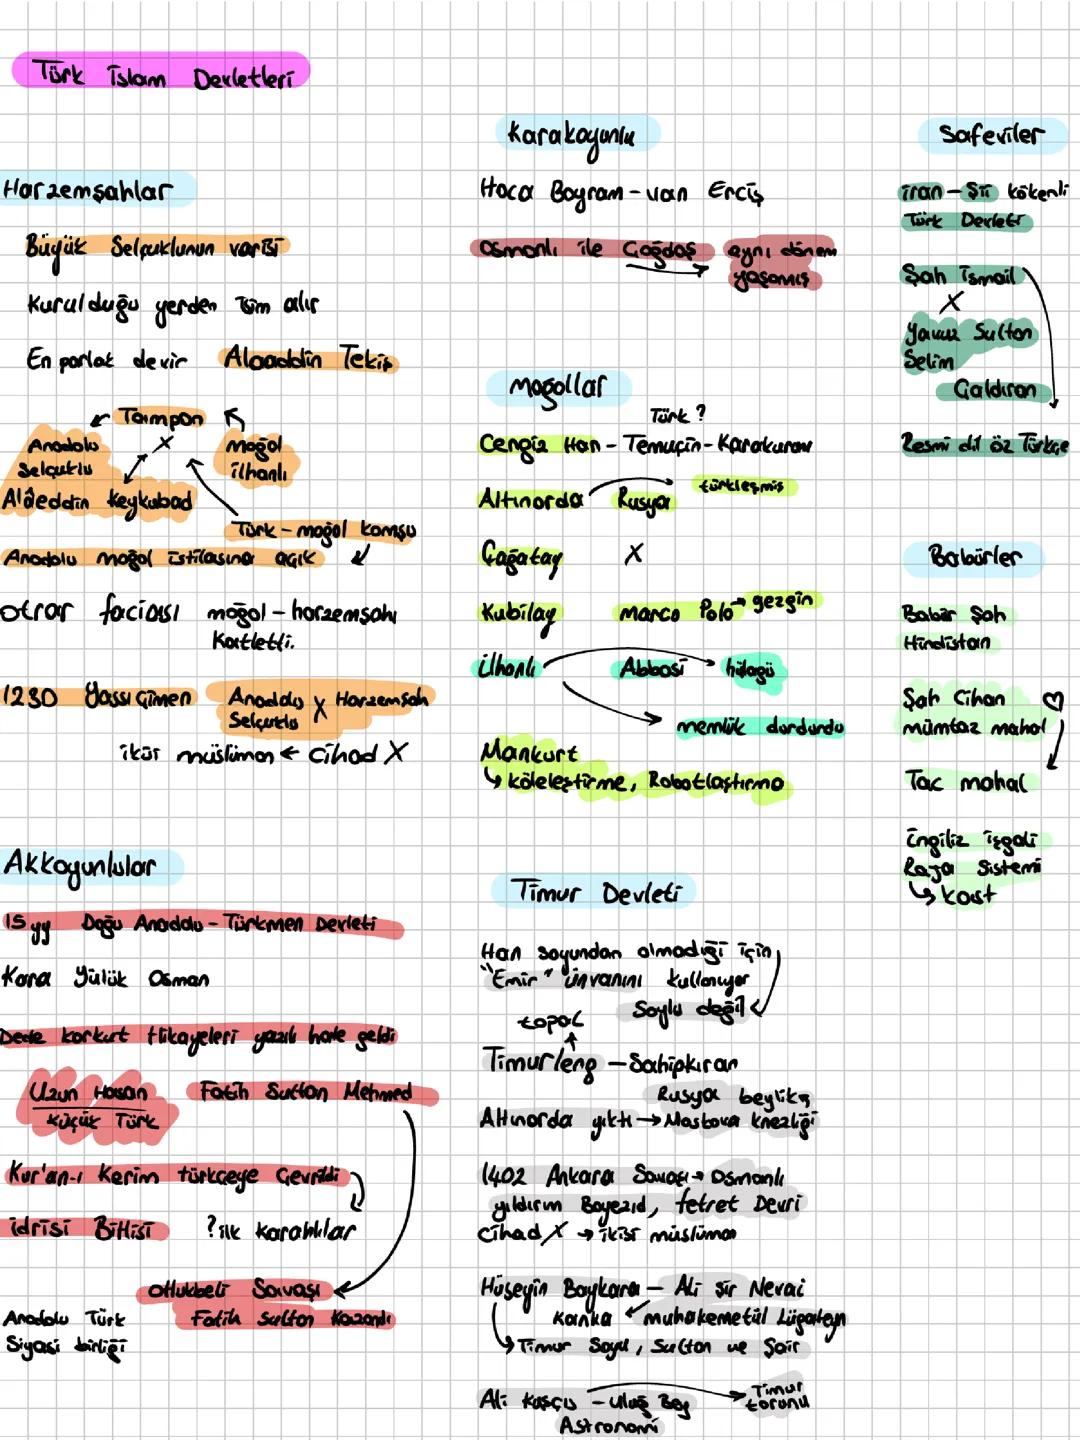 Türk İslam Devletleri
Harzemşahlar
Büyük Selçuklunun varisi
Kurulduğu yerden isim alır
En parlak devir Alaaddin Tekiş
Tampon
Anadolu
Selçuklu
X
moğol
ilhanlı
Alaeddin Keykubad
Türk - moğol komşu
Anadolu moğol istilasına açık
Otrar faciası moğol - harzemşahı
Katletti.
1230 Yassı Çimen Anadolu X Harzemşah
Selçuklu
ikisi müslüman ← cihad X
Akkoyunlular
15 yy Doğu Anadolu - Türkmen Devleti
Kara Yülük Osman
Dede Korkut Hikayeleri yazılı hale geldi
Uzun Hasan Fatih Sultan Mehmed
küçük Türk
Kur'an-ı Kerim türkçeye Çevrildi
idrisi Bitlisi ? ilk Karahlılar
Otlukbeli Savaşı
Anadolu Türk Fatih Sultan Kazandı
Siyasi birliği
Karakoyunlu
Hoca Bayram - van Erciş
Osmanlı ile Çağdaş → aynı dönem
yaşamış
moğollar
Türk ?
Cengiz Han - Temuçin - Karakurum
Altınorda Rusya türkleşmiş
Çağatay X
Kubilay marco Polo → gezgin
İlhanlı Abbasi → hülagü
memlük durdurdu
Mankurt
↳ köleleştirme, Robotlaştırma
Timur Devleti
Han soyundan olmadığı için
"Emir" ünvanını kullanıyor
Soylu değil
topal
Timurleng - Sahipkıran
Rusya beylik
Altınorda yıktı → Moskova knezliği
1402 Ankara Savaşı → Osmanlı
yıldırım Bayezid, fetret Devri
cihad X → ikisi müslüman
Hüseyin Baykara - Ali Şir Nevai
kanka muhakemetül Lügateyn
↳ Timur Soyu, Sultan ve Şair
Ali Kuşçu - Uluğ Bey → Timur
torunu
Astronomi
Safeviler
iran - Şii kökenli
Türk Devleti
Şah İsmail
X
Yavuz Sultan
Selim
Çaldıran
Resmi dil öz Türkçe
Babürler
Babür Şah
Hindistan
Şah Cihan ♡
mümtaz mahal
Tac mahal
İngiliz işgali
Raja Sistemi
↳ kast